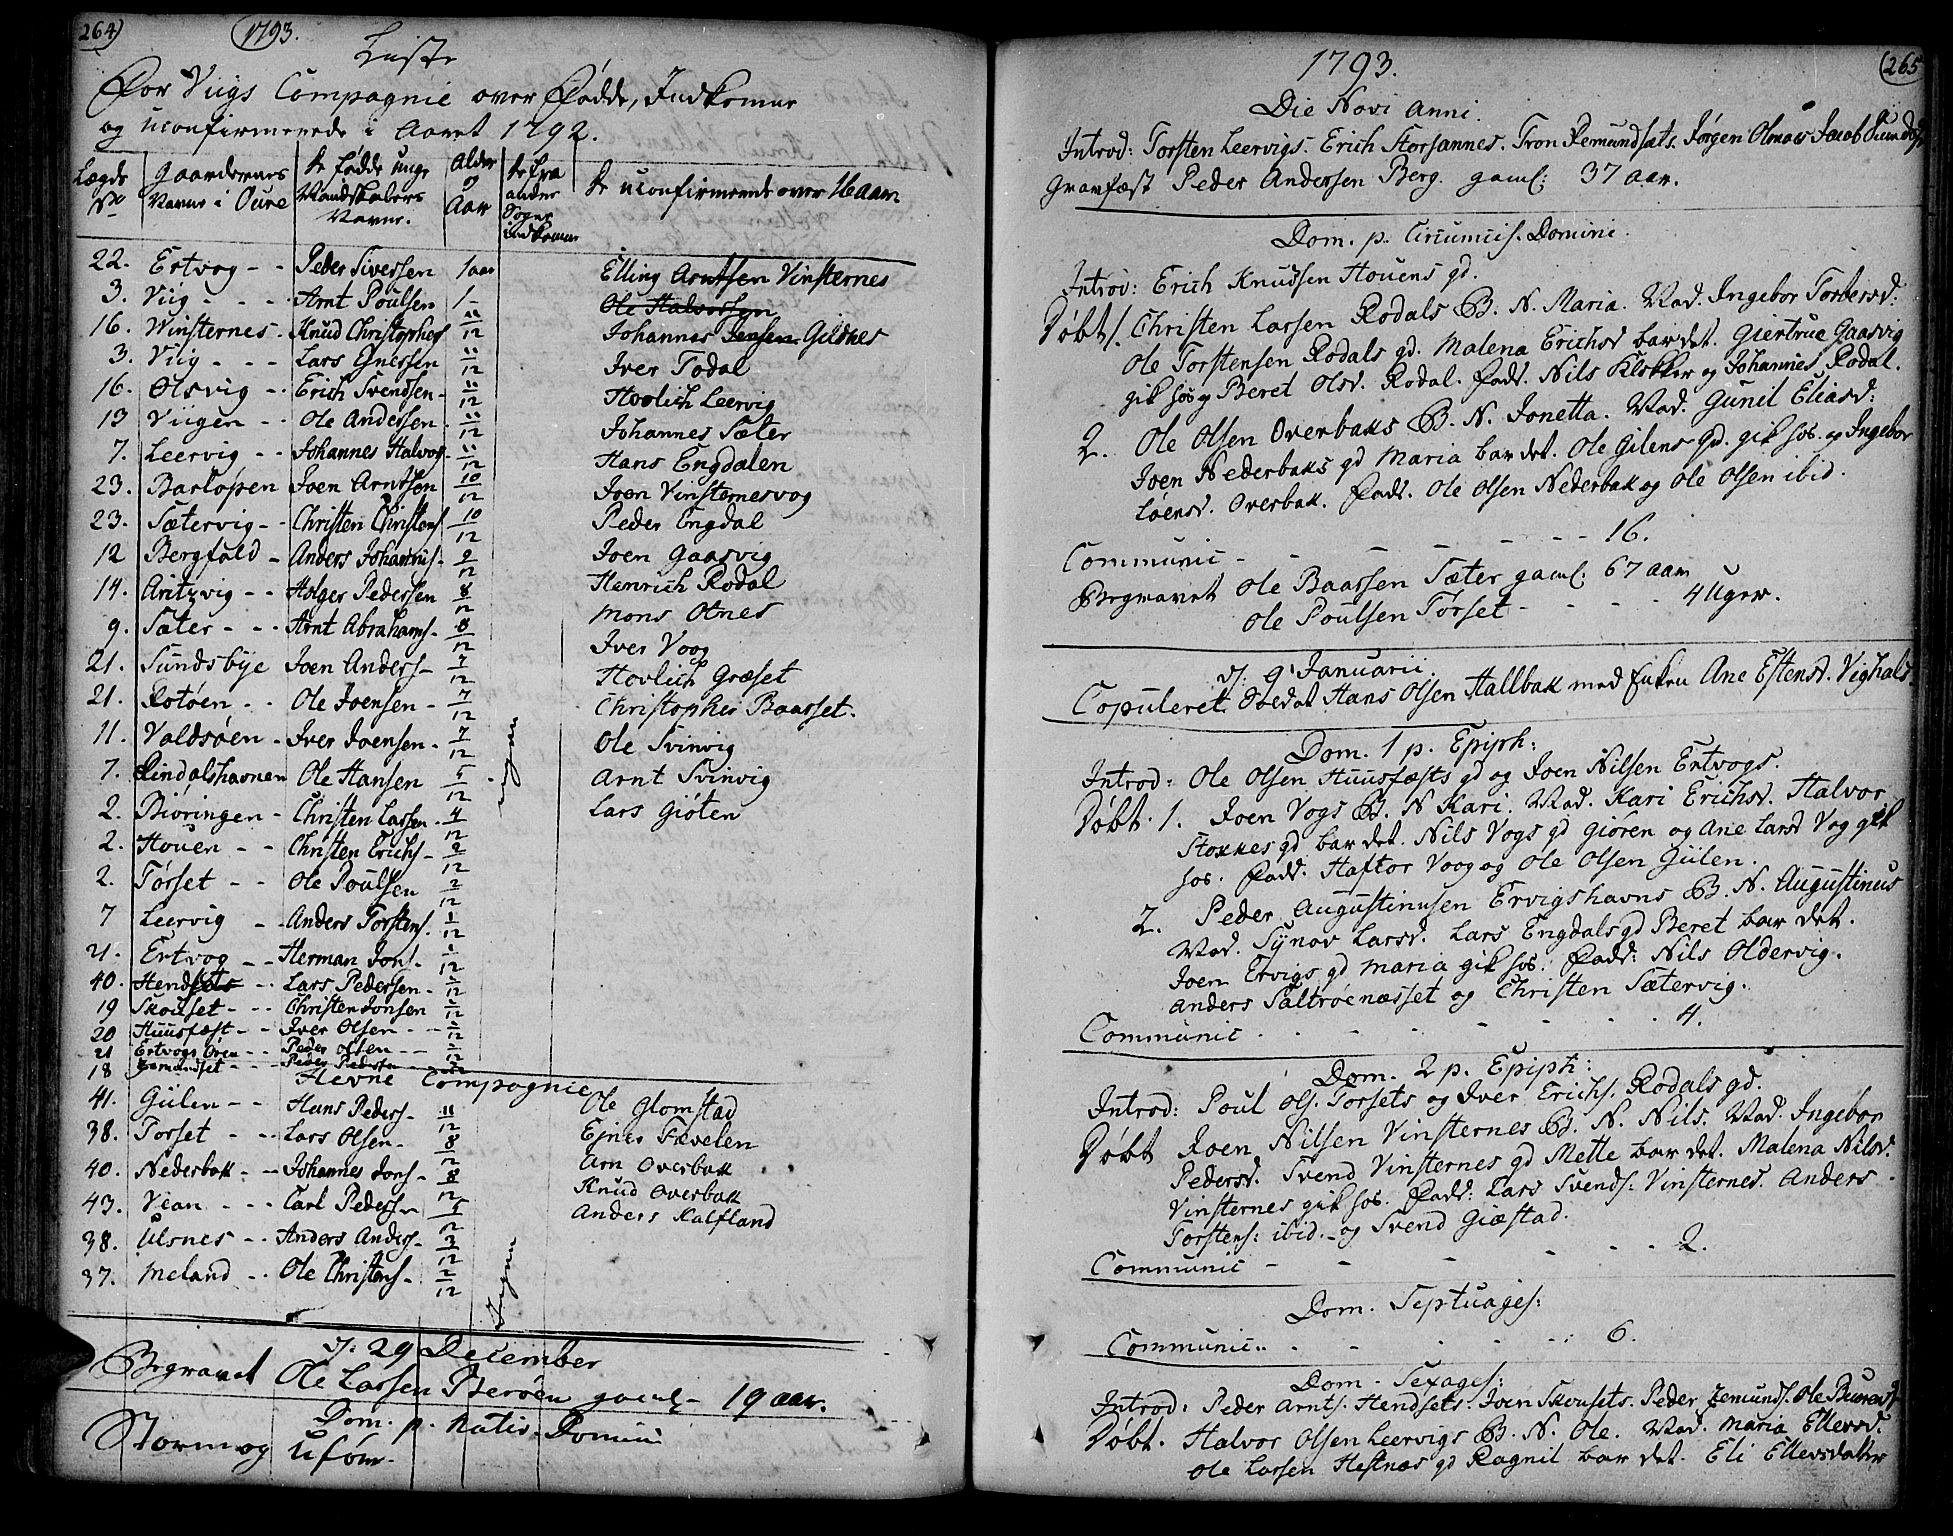 264)
1793.
Liste
For Viigs Compagnie over Fødde, Indkomne
og uconfirmerede i Aaret 1792.
Lægds No | Gaardernes Navne i Oure | De fødde unge Mandskabers Navne. | Alder Aar | De fra andre Sogne indkomne | De uconfirmerede over 16 aar
22. Ertvog - - Peder Sivessen 1 aar Elling Arntsen Vinsternes
3. Viig - - - Arnt Poulsen 1 - Ole Halvorsen
16. Winsternes - Knud Christophers 11/12 Johannes Jensen Gildnes
3. Viig - - - Lars Gnessen 11/12 Iver Todal
16. Olsvig - - Erich Svendsen - 11/12 Hovlich Leervig
13 Viigen - - Ole Anderssen 11/12 Johannes Sæter
7. Leervig - - Johannes Halvor 11/12 Hans Engdalen
23. Barløpen Joen Arntsen 10/12 Joen Vinsternesvog
23. Sætervig - - Christen Christens 10/12 Peder Engdal
12 Bergfald - Anders Johannis - 9/12 Joen Gaasvig
14. Aritzvig - - Holger Pedersen 8/12 Henrich Rodal
9. Sæter - - - Arnt Abrahams - 8/12 Mons Otnes
21. Sundsbye Joen Anders - 7/12 Iver Voog
21. Rotøen - - Ole Joensen - 7/12 Hovlich Græset
11. Valdsøen - Iver Joensen - 7/12 Christopher Baasset.
7. Lindalshavnen Ole Hansen 5/12 Ole Svinvig
2. Biøringen - Christen Larsen - 4/12 Arnt Svinvig
2. Houen - - Christen Erichs - 2/12 Lars Giøten
2. Tørset - - Ole Poulsen 2/12
7 Leervig - Anders Torstens. 1/12
21. Ertvog - - Herman Jons - 1/12
40. Hendsets - - Lars Pedersen -
19 Skouset - - - Christen Jonsen
20 Huusfæst - - Iver Olsen - -
21 Ertvogs Øren - - Peder Olsen - -
18 Remundset - - - Peder Pedersen
Ingen
Hevne Compagnie
41. Gülen - - Hans Peders - 11/12 Ole Glomstad
38. Torset - - - Lars Olsen - 8/12 Ejner Fævelen
40. Nederbak - - Johannes Jons - 8/12 Arn Overbak
43. Vean - - - Carl Pedersen 5/12 Knud Overbak
38. Ulsnes - - Anders Anders - 3/12 Anders Kalfland
37. Meland - - Ole Christens - 2/12
Ingen
D. 29 December
Begravet Ole Larsen Berøen gaml - 19 aar.
Dom. p. Natis. Domini
Storm og Uføre.
1793.
265
Die Novi Anni.
Introd: Torsten Leervigs. Erich Storsannes. Tron Remundsæts. Jørgen Olmais Jacob
Gravfæst Peder Andersen Berg. gaml: 37 aar.
Dom. p. Circumcis. Domini.
Introd: Erich Knudsen Houens gd.
Døbt 1. Christen Larsen Rodals B. N. Maria. Mod. Ingebor Torbersd:
Ole Torstensen Rodals gd. Malena Erichsd bar det. Giertrue Gaasvig
gik hos og Beret Olsd. Rodal. Fadd. Nils Klokker og Johannes Rodal.
2. Ole Olsen Overbaks B. N. Jonetta. Mod. Gunil Eliasd:
Joen Nederbaks gd Maria bar det. Ole Gilens gd. gik hos. og Ingebor
Loensd. Overbak. Fadd. Ole Olsen Nederbak og Ole Olsen ibid.
Communic - - - - - - - 16.
Begravet Ole Baarsen Sæter gaml: 67 aar
Ole Poulsen Tørset - - - - 4 Uger.
D. 9 Januarii
Copuleret. Soldat Hans Olsen Hallbak med Enken Ane Estensd. Vighals
Dom. 1 p. Epiph:
Introd: Ole Olsen Huusfæsts gd og Joen Nilsen Ertvogs.
Døbt. 1. Joen Vogs B. N Kari. Mod. Kari Erichsd. Halvor
Stokkes gd bar det. Nils Vogs gd Giøren og Ane Larsd Vog gik
hos. Fadd. Haftor Voog og Ole Olsen Gülen.
2. Peder Augustinusen Ervigshavns B. N. Augustinus
Mod. Synov Larsd. Lars Engdals gd Beret bar det.
Joen Ervigs gd Maria gik hos. Fadd: Nils Oldervig.
Anders Saltrøenæsset og Christen Sætervig.
Communic - - - - - - - 4.
Dom. 2 p. Epiph:
Introd: Poul Ols. Torsets og Iver Erichs. Rodals gd.
Døbt Joen Nilsen Vinsternes B. N. Nils. Mod. Ingebor
Pedersd. Svend Vinsternes gd Mette bar det. Malena Nilsd.
Vinsternes gik hos. Fadd: Lars Svends: Vinsternes. Anders
Torstens: ibid. - og Svend Giæstad.
Communic - - - - - - 2.
Dom. Septuages:
Communic.. - - - - - 6.
Dom. Sexages:
Introd: Peder Arnts. Hendsets. Joen Skousets. Peder Remunds. Ole
Døbt. Halvor Olsen Leervigs B. N. Ole. Mod. Maria Ellevsd.
Ole Larsen Hestnæs gd Ragnil bar det. Eli Ellevsdatter